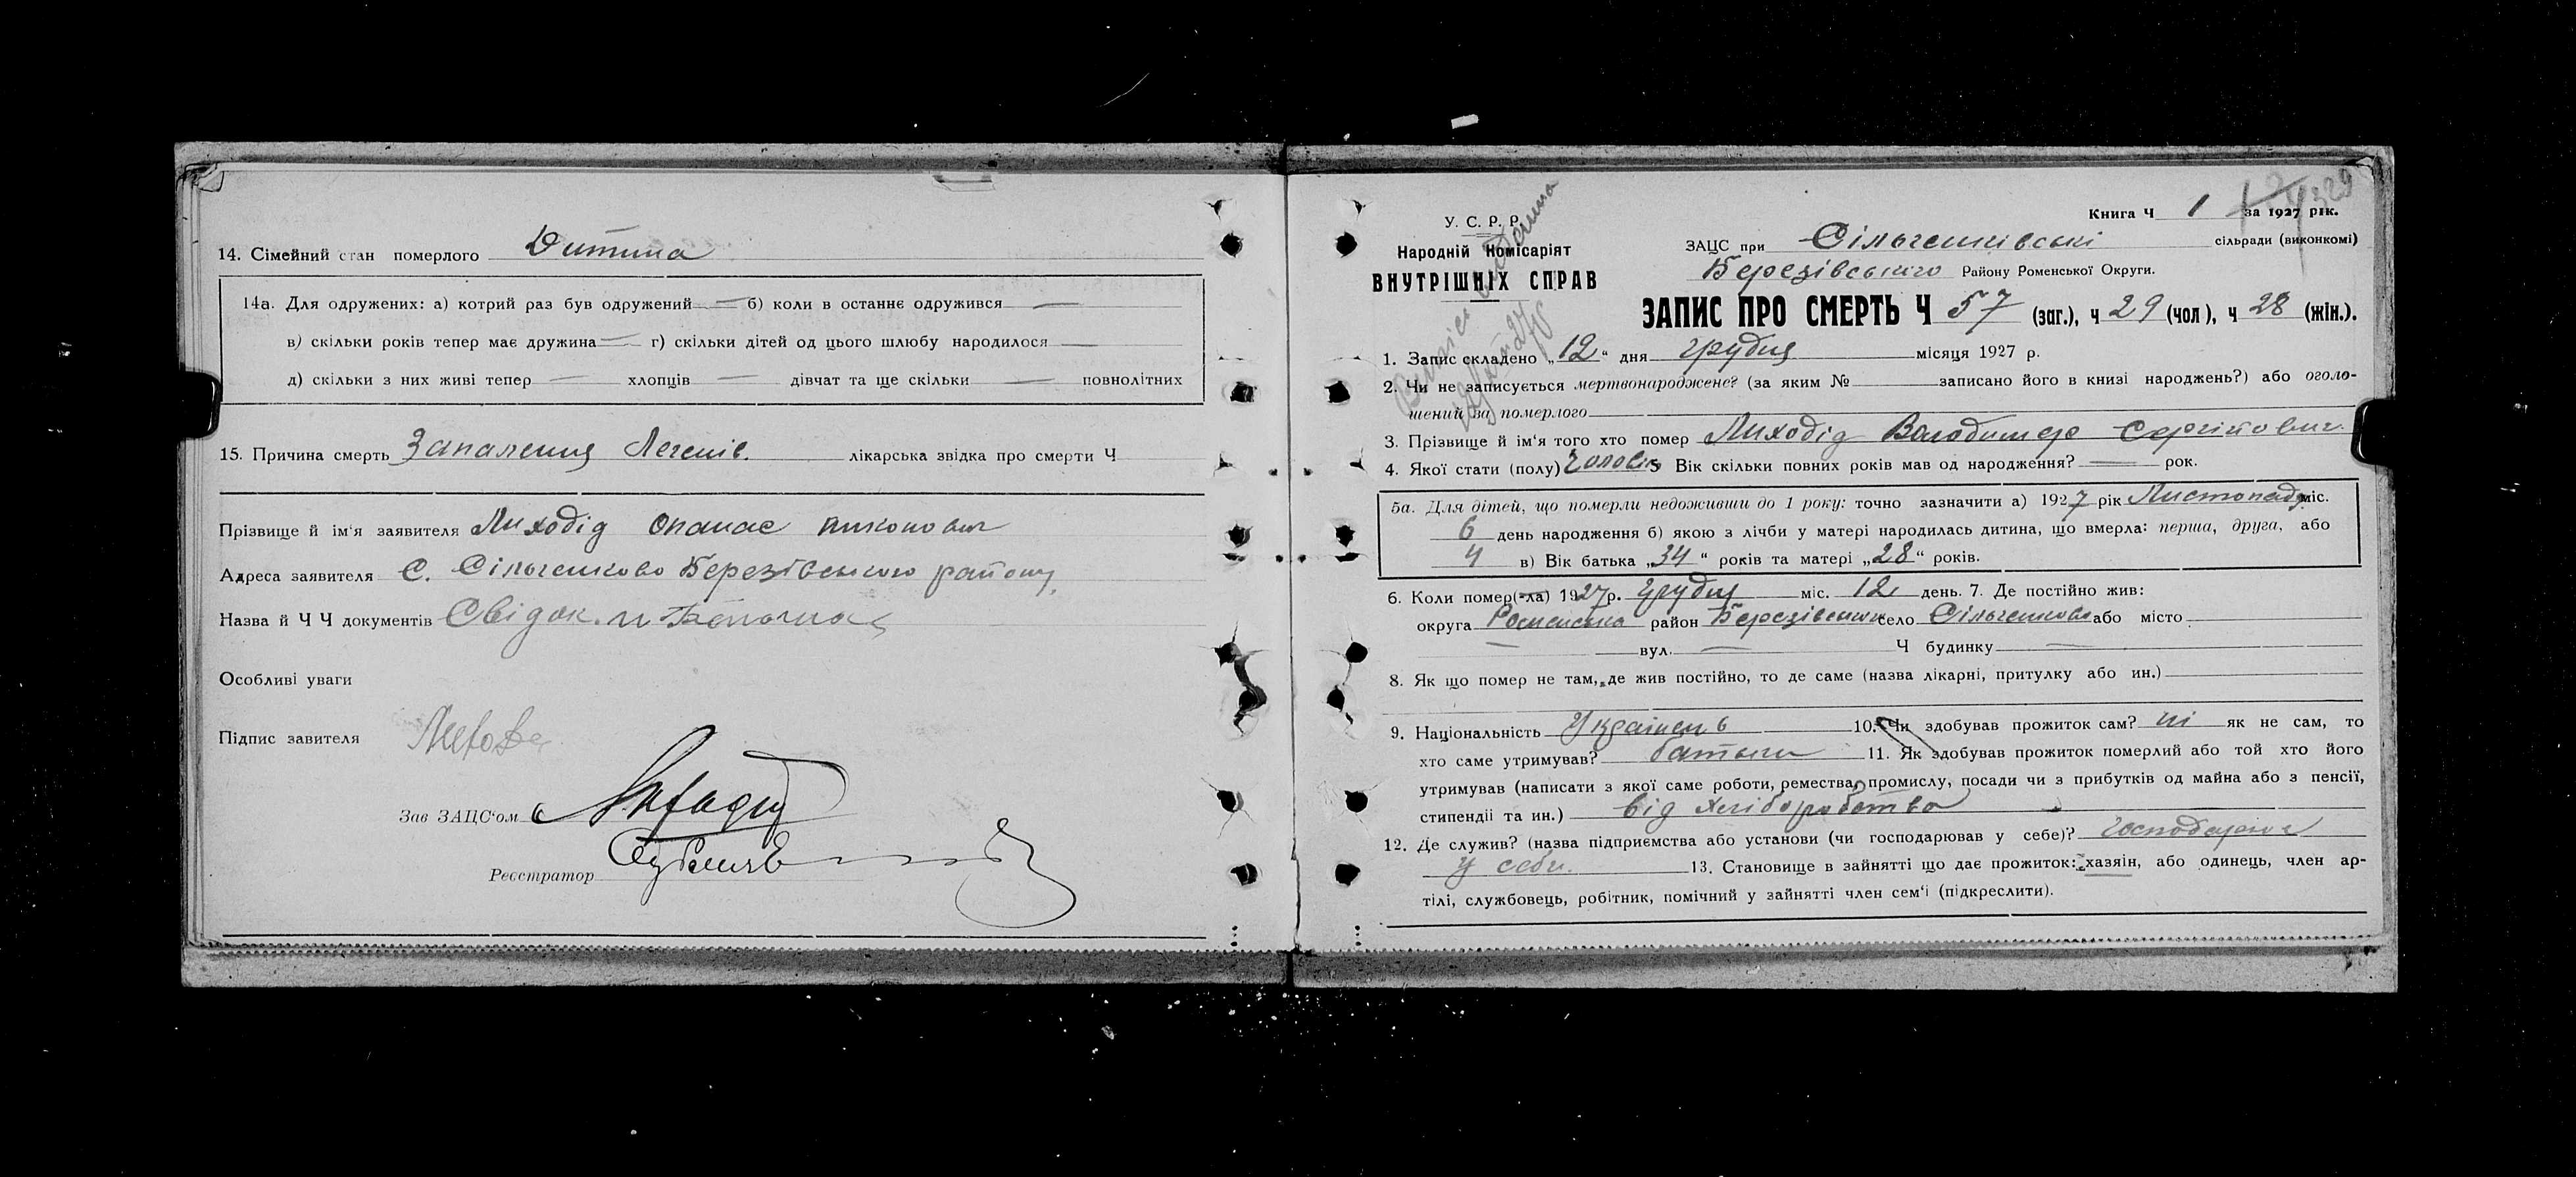 14. Сімейний стан померлого Дитина
14а. Для одружених: а) котрий раз був одружений — б) коли в останнє одружився —
в) скільки років тепер має дружина — г) скільки дітей од цього шлюбу народилося —
д) скільки з них живі тепер — хлопців — дівчат та ще скільки — повнолітних
15. Причина смерть Запалення Легенів. лікарська звідка про смерти Ч
Прізвище й ім'я заявителя Лиходід Опанас
Адреса заявителя С. Сільченково Березівського району
Назва й Ч Ч документів Свідок.
Особливі уваги
Підпис завителя
Зав ЗАЦС'ом
Реєстратор
329
У. С. Р. Р.
Народній Комісаріят
ВНУТРІШНІХ СПРАВ
Книга Ч 1 за 1927 рік.
ЗАЦС при Сільченківські сільради (виконкомі)
Березівського Району Роменської Округи.
ЗАПИС ПРО СМЕРТЬ Ч 57 (заг.), ч 29 (чол), ч 28 (жін.).
1. Запис складено „12" дня грудня місяця 1927 р.
2. Чи не записується мертвонароджене? (за яким № записано його в книзі народжень?) або оголо-
шений за померлого
3. Прізвище й ім'я того хто помер Лиходід Володимер Сергійович
4. Якої стати (полу) Чоловіч Вік скільки повних років мав од народження? — рок.
5а. Для дітей, що померли недоживши до 1 року: точно зазначити а) 1927 рік Листопада міс.
6 день народження б) якою з лічби у матері народилась дитина, що вмерла: перша, друга, або
4 в) Вік батька „34" років та матері „28" років.
6. Коли помер(-ла) 1927р. грудня міс. 12 день. 7. Де постійно жив:
округа Роменська район Березівський село Сільченково або місто
— вул. — Ч будинку —
8. Як що помер не там, де жив постійно, то де саме (назва лікарні, притулку або ин.)
9. Національність Українець 10. Чи здобував прожиток сам? ні як не сам, то
хто саме утримував? батьки 11. Як здобував прожиток померлий або той хто його
утримував (написати з якої саме роботи, ремества, промислу, посади чи з прибутків од майна або з пенсії,
стипендії та ин.) від хліборобства
12. Де служив? (назва підприємства або установи (чи господарював у себе)? господарює
у себе. 13. Становище в зайнятті що дає прожиток: хазяін, або одинець, член ар-
тілі, службовець, робітник, помічний у зайнятті член сем'і (підкреслити).